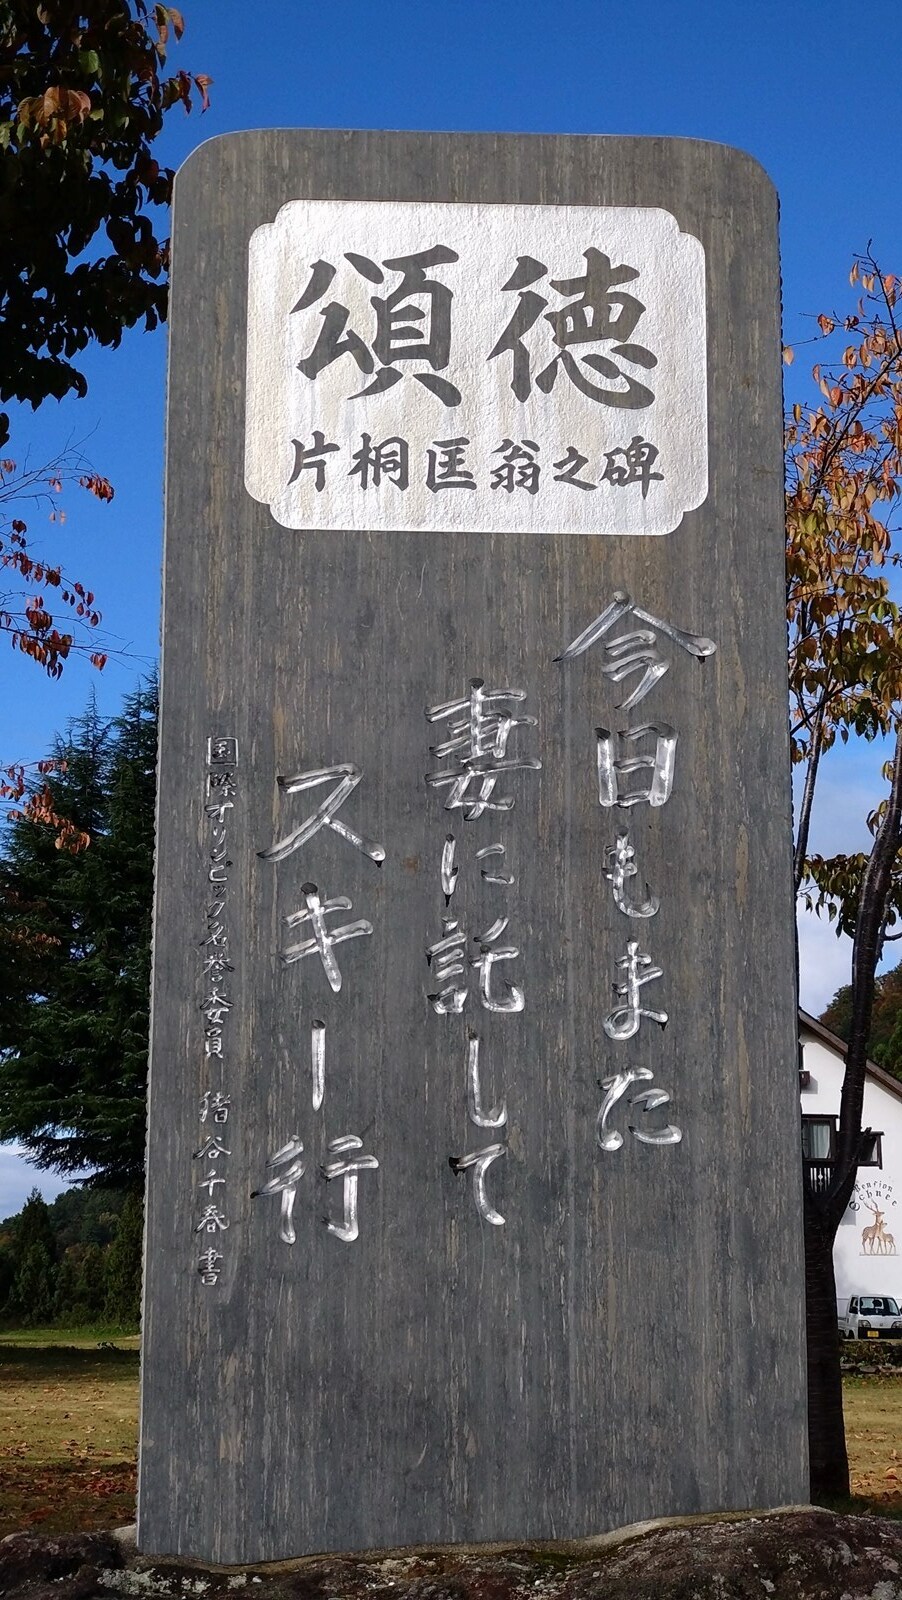 頌徳
片桐匡翁之碑
今日もまた
妻に託して
スキー行
国際オリンピック名誉委員 猪谷千春書
Pension
Schnee